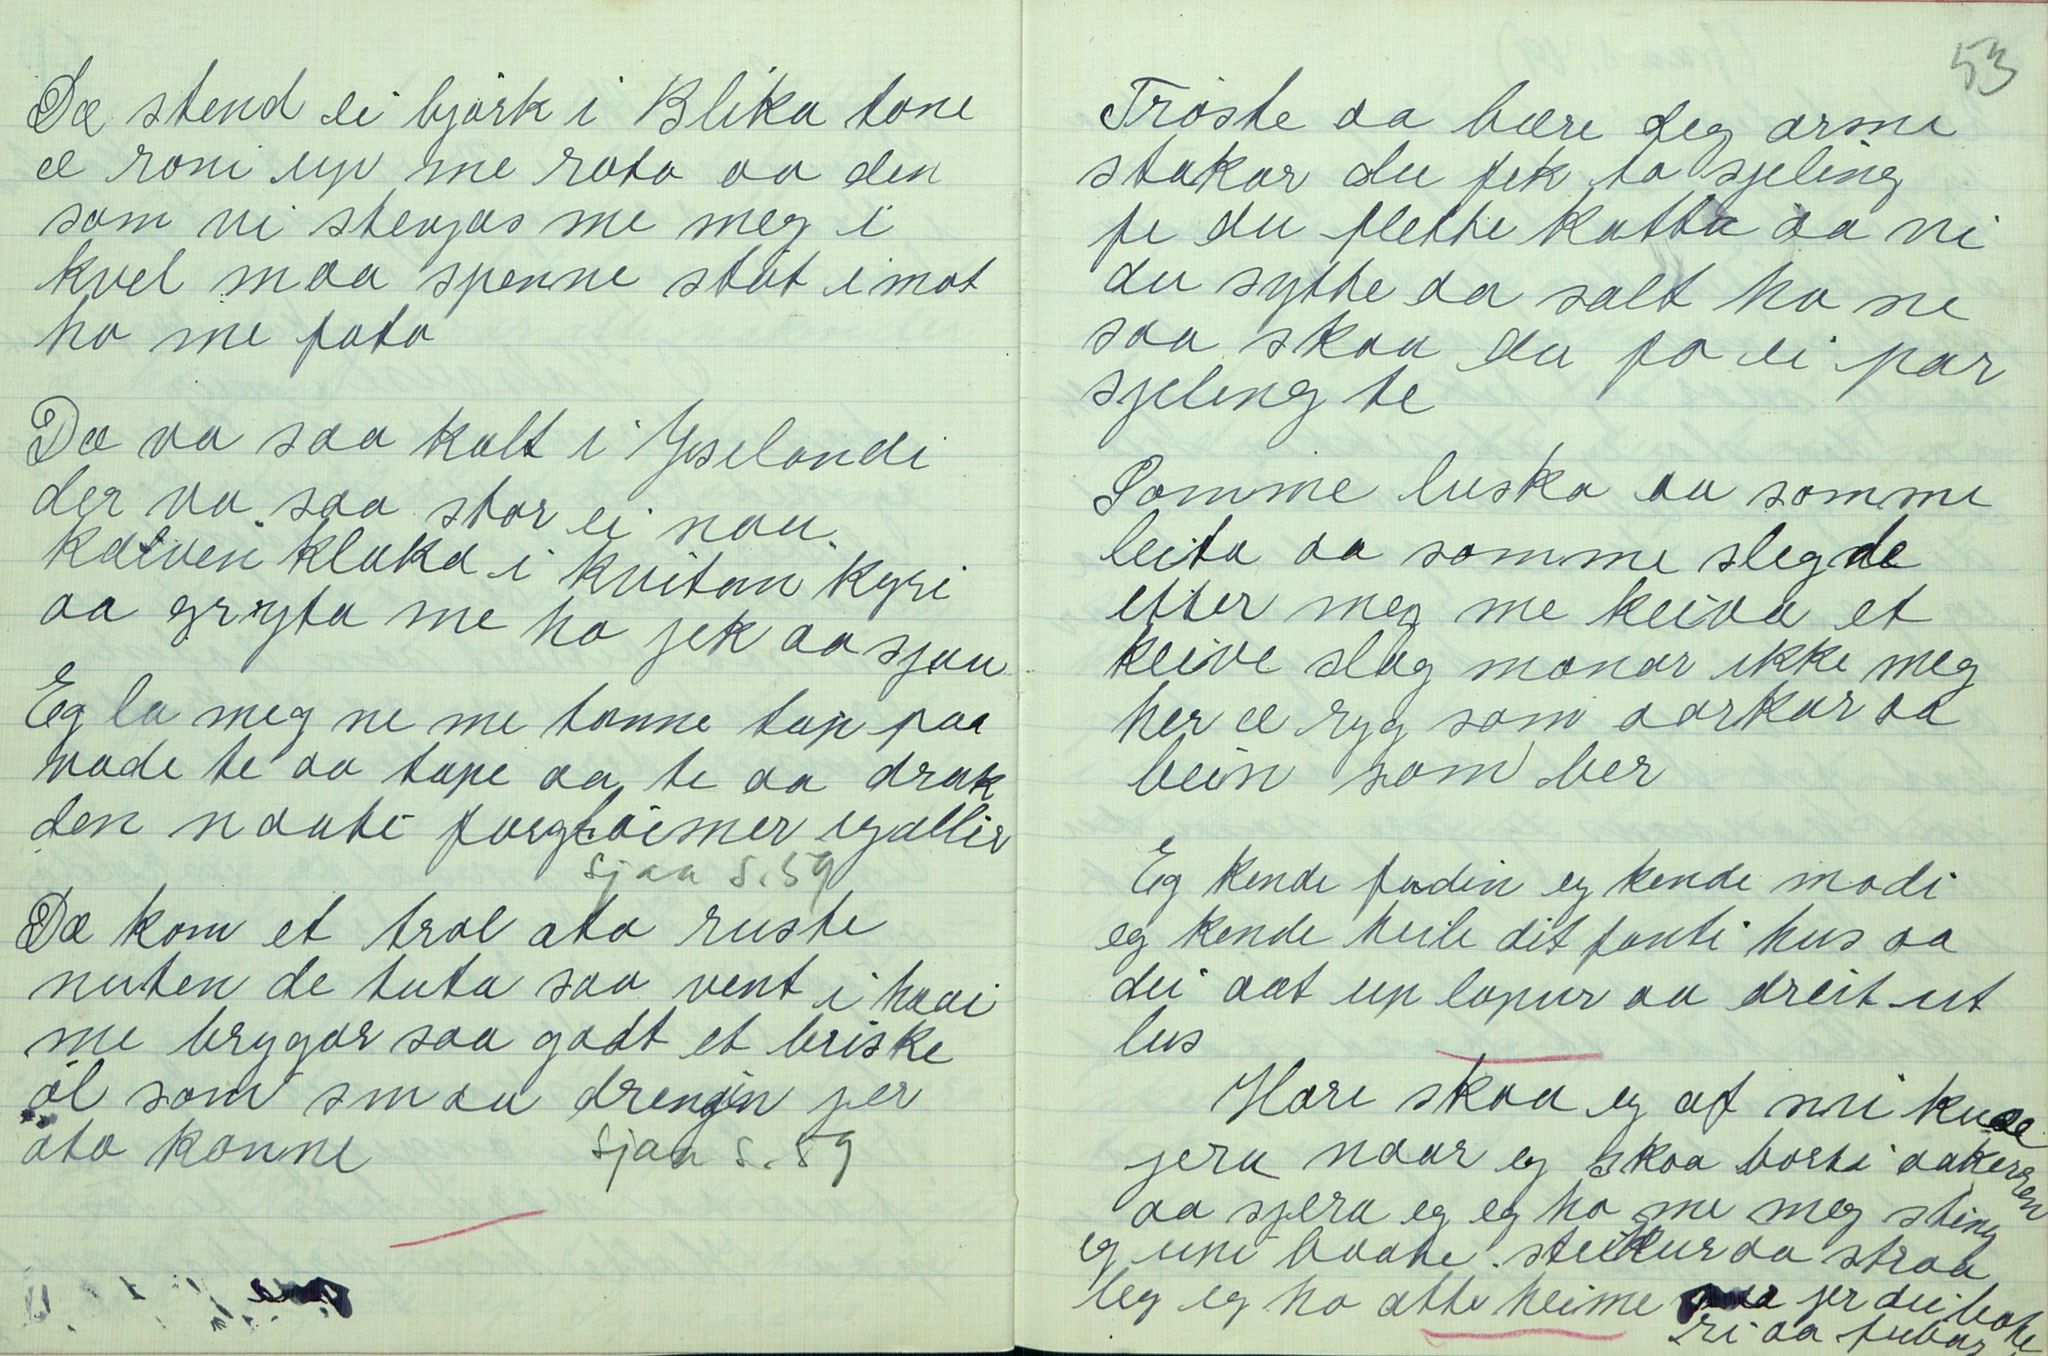 Dæ stend ei bjørk i Blika tone
æ roni up me rota aa den
som vi stengas me meg i
kvel maa spenne støt imot
ho me fota
Dæ va saa kalt i Yselandi
der va saa stor ei nau
kalven klaka i kvitan kyri
aa gryta me ho jek aa sjau
Eg la meg ne me tonne tap paa
vade te aa tape aa te aa drak
den naati forgløimer eg allir
Sjaa S. 59
Dæ kom et trol ata ruste
nuten de tuta saa vent i haai
me brygar saa godt et briske
øl som smaa drengin jer
ata konne
Sjaa S. 59
53
Trøste aa bære deg arme
stakar du fek to sjeling
fe du flette katta aa vi
du sytte aa salt ho ne
saa skaa du fo ei par
sjeling te
Somme luska aa somme
leita aa somme slegde
etter meg me keiva et
keive slag monar ikke meg
her æ ryg som aarkar aa
bein som ber
Eg kende fadin eg kende modi
eg kende heile dit fanti hus aa
dei aat up lopur aa dreit ut
lus
Høre skaa eg af mi kuæ
jera naar eg skaa borti aakerren
aa sjera eg eg ho me meg sting
eg uni baate steikur aa straa
leg eg ho atte heime jer dei bate
ri aa